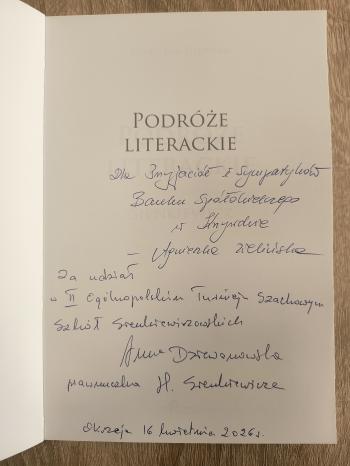 PODRÓŻE
LITERACKIE
Dla Przyjaciół i Sympatyków
Banku Spółdzielczego
w Krzywdzie
– Agnieszka Zielińska
Za udział
w II Ogólnopolskim Turnieju Szachowym
Szkół Sienkiewiczowskich
Anna Dziewanowska
prawnuczka H. Sienkiewicza
Okrzeja 16 kwietnia 2026 r.